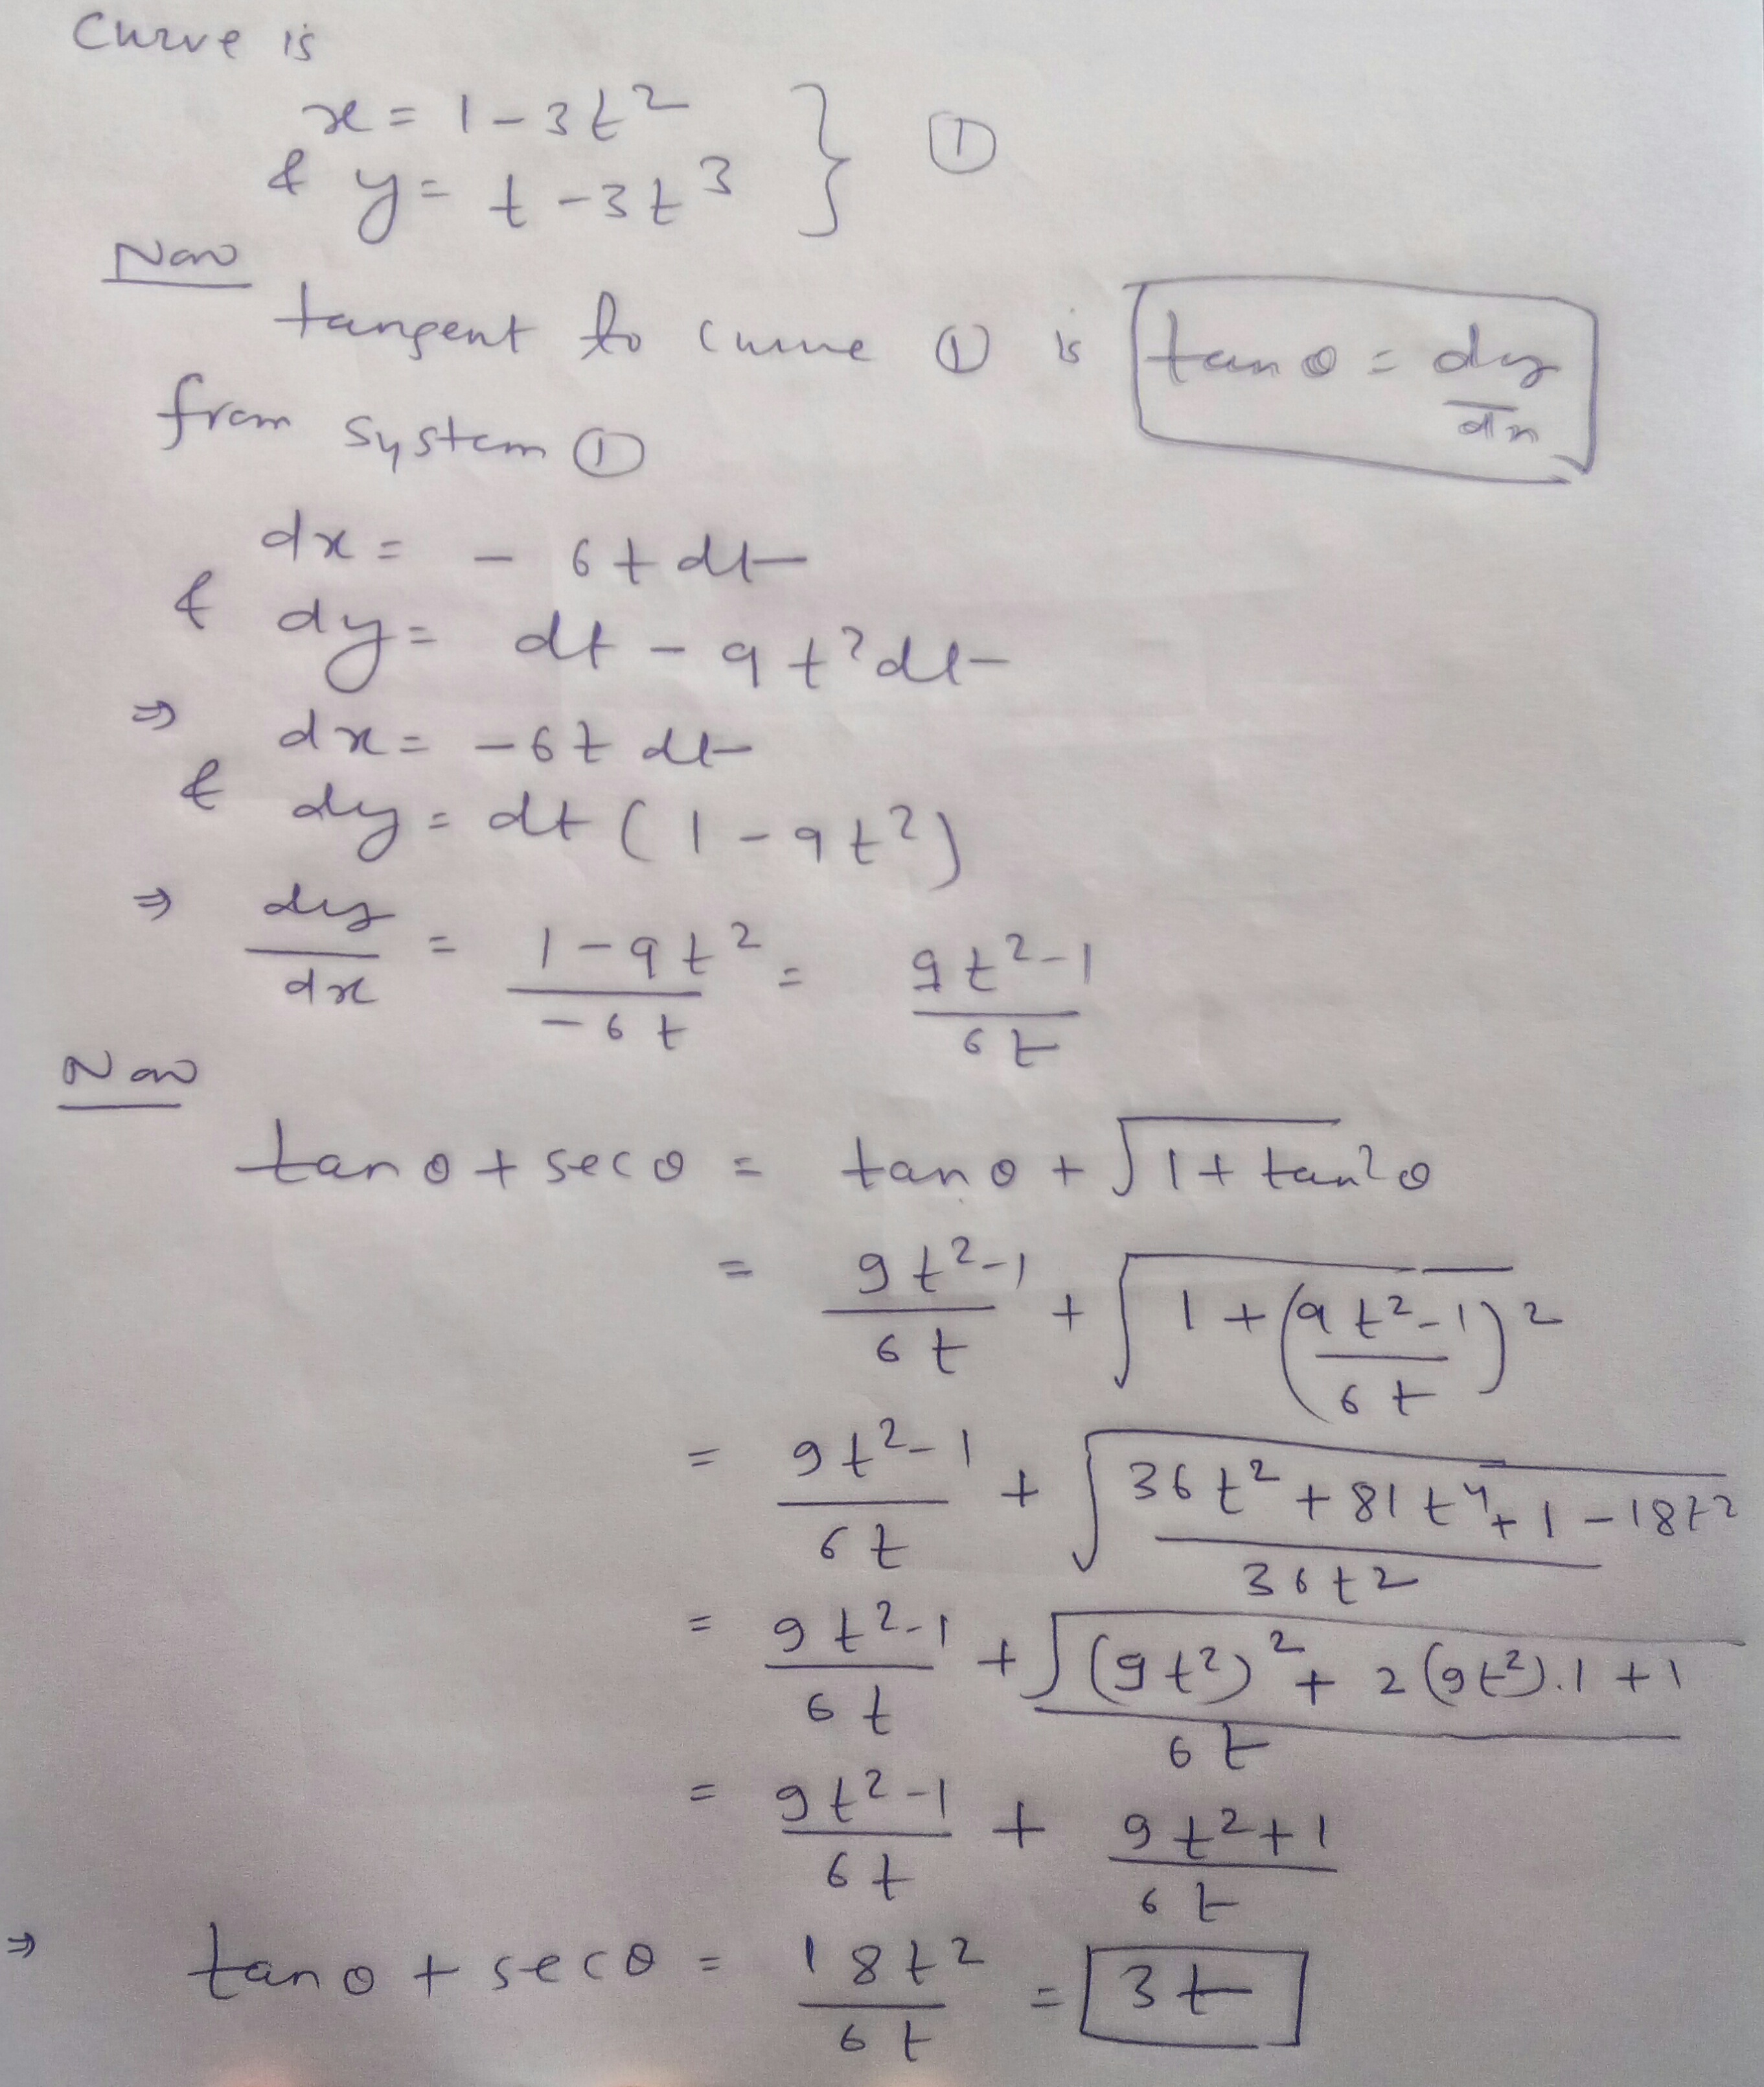 Curve is
x = 1 - 3t² } ①
& y = t - 3t³
Now
tangent to curve ① is tan θ = dy/dx
from system ①
dx = - 6t dt
& dy = dt - 9t² dt
⇒ dx = -6t dt
& dy = dt (1 - 9t²)
⇒ dy/dx = (1 - 9t²)/(-6t) = (9t² - 1)/(6t)
Now
tan θ + sec θ = tan θ + √(1 + tan² θ)
= (9t² - 1)/(6t) + √(1 + ((9t² - 1)/(6t))²)
= (9t² - 1)/(6t) + √((36t² + 81t⁴ + 1 - 18t²)/(36t²))
= (9t² - 1)/(6t) + √((9t²)² + 2(9t²).1 + 1)/(6t)
= (9t² - 1)/(6t) + (9t² + 1)/(6t)
⇒ tan θ + sec θ = 18t²/(6t) = 3t